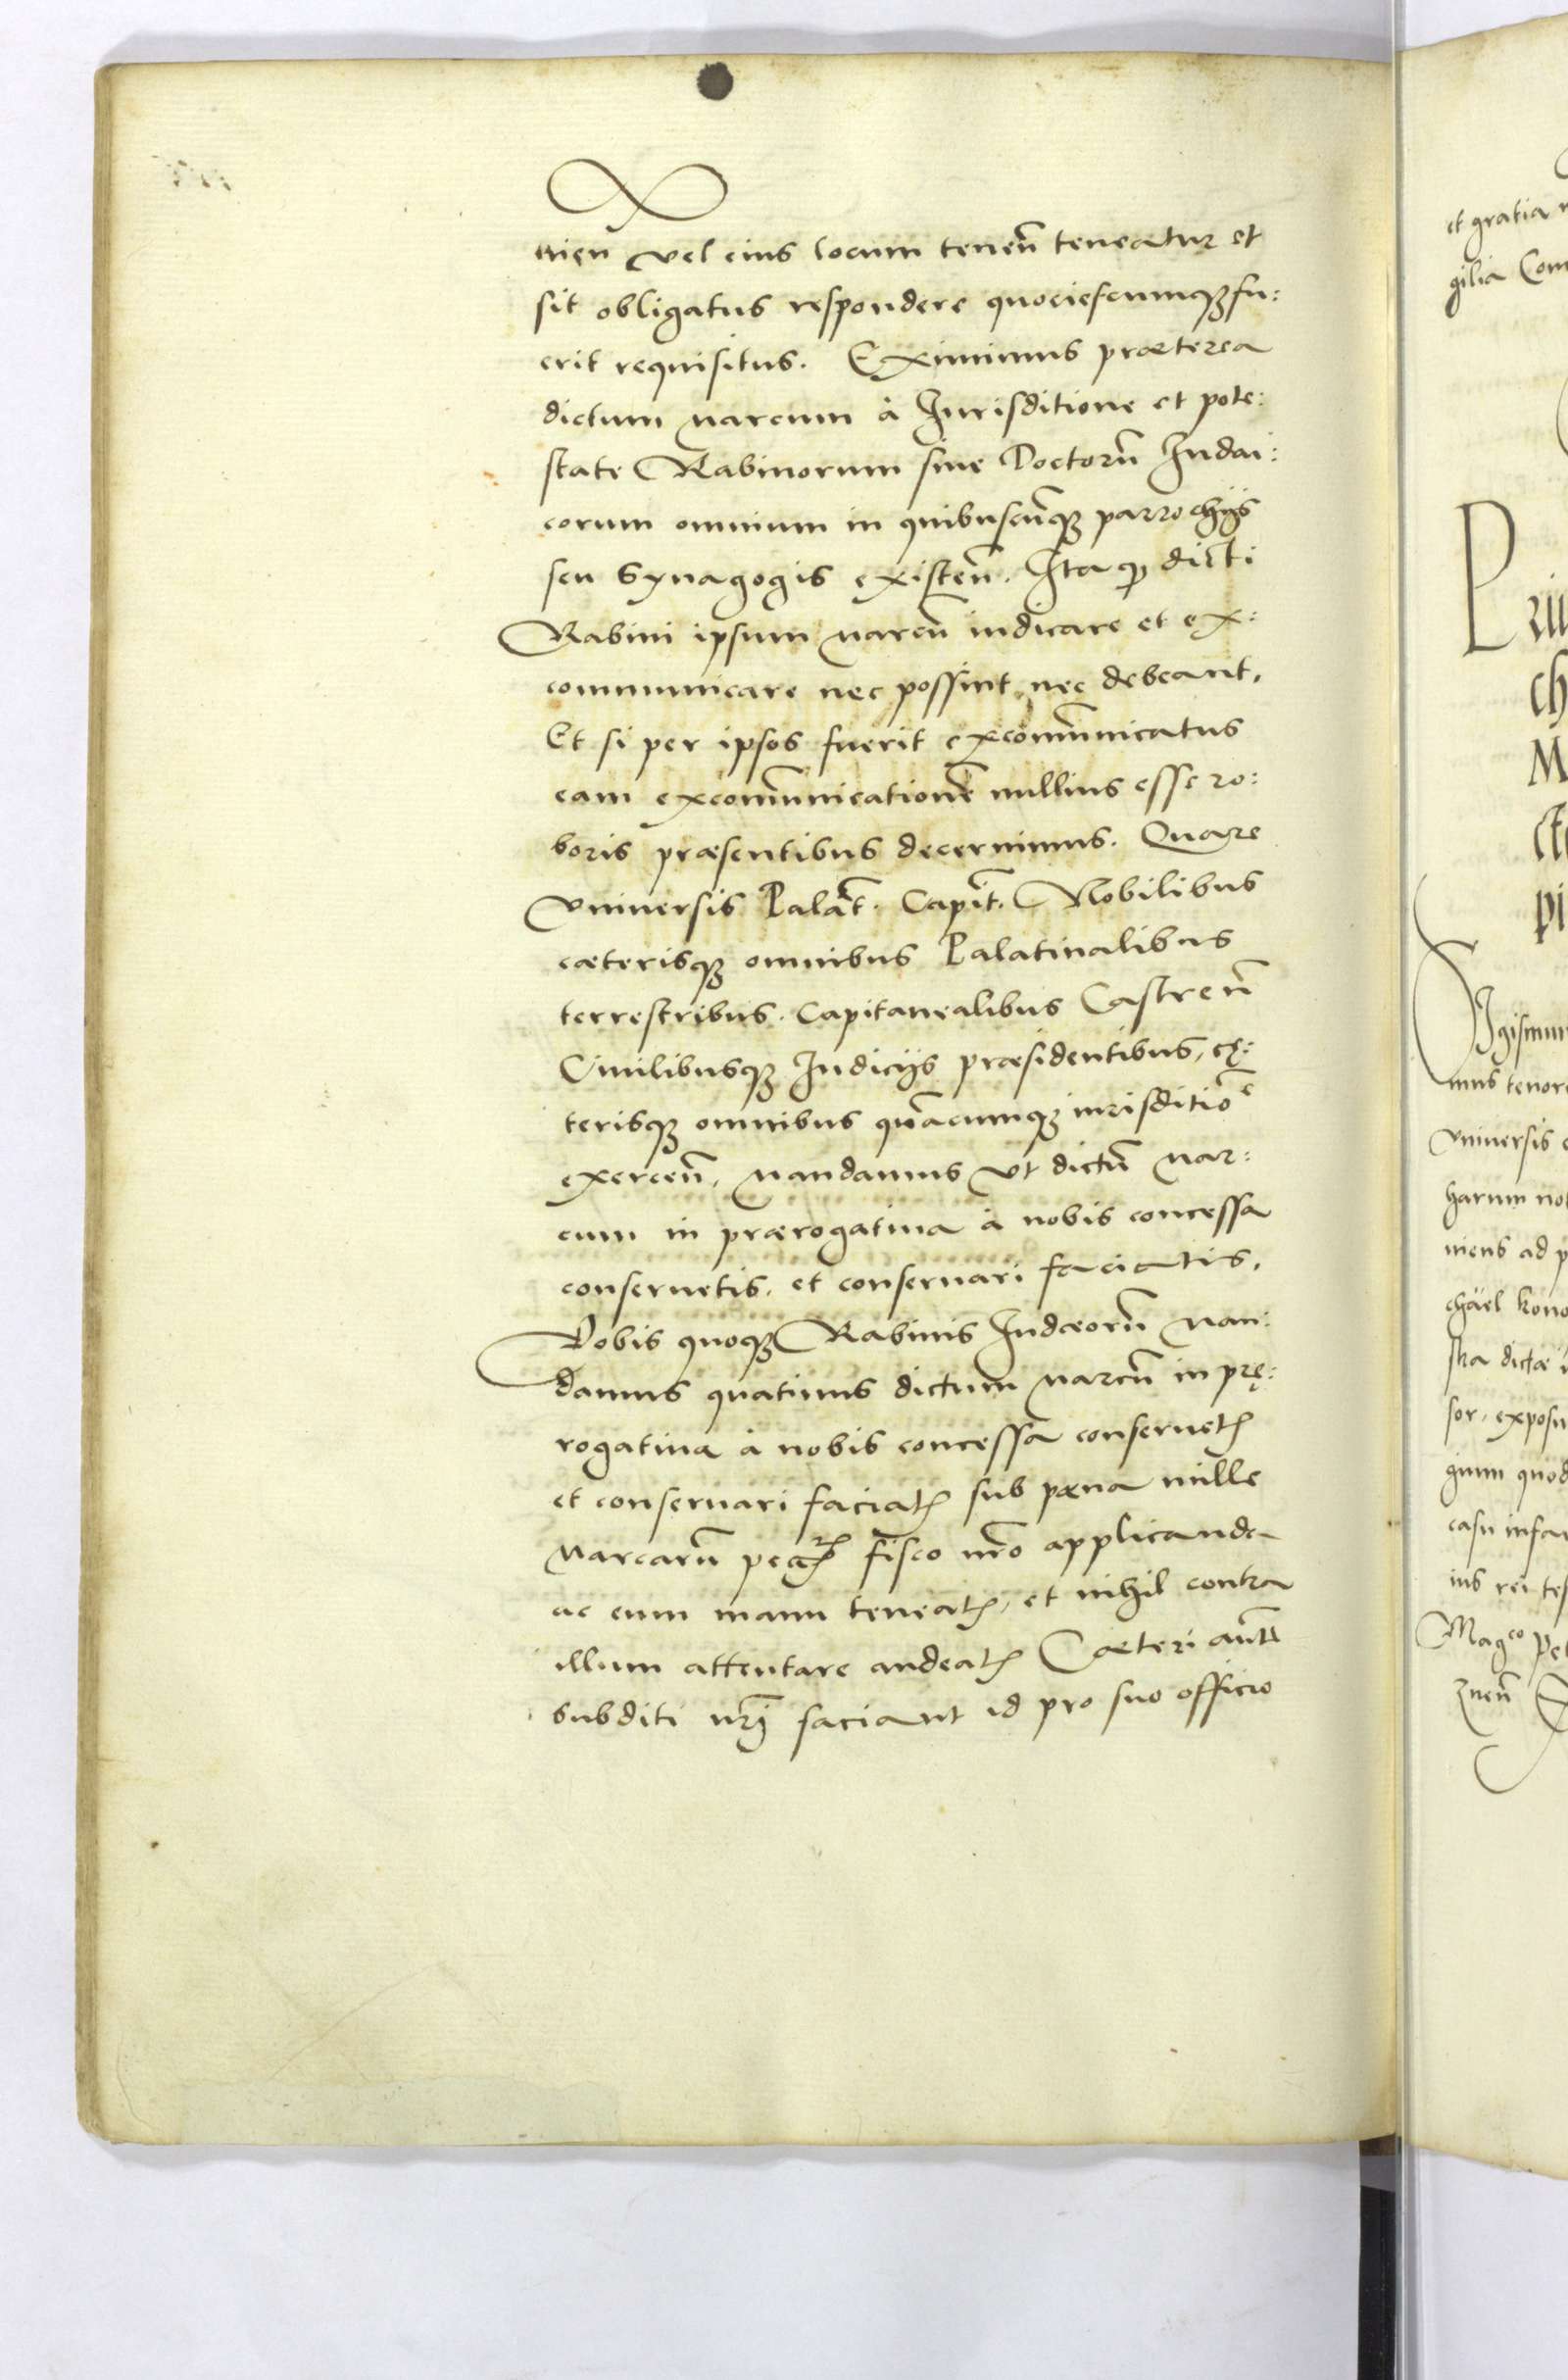 uien vel eius locum tenen̄ teneatur et
sit obligatus respondere quociescumqꝫ fu:
erit requisitus. Eximimus præterea
dictum Marcum à Jurisditione et pote:
state Rabinorum siue Doctorū Judai:
corum omnium in quibuscūqꝫ parrochijs
seu Synagogis existen̄. Ita ꝙ dicti
Rabini ipsum Marcū iudicare et ex:
communicare nec possint nec debeant,
Et si per ipsos fuerit excom̄unicatus
eam excom̄unicationē nullius esse ro:
boris præsentibus decernimus. Quare
Vniuersis Palāt. Capit̄. Nobilibus
cæterisqꝫ omnibus Palatinalibus
terrestribus. Capitanealibus Castren̄
Ciuilibusqꝫ Judicijs præsidentibus, cę:
terisqꝫ omnibus quācumqꝫ iurisditiōe
exercen̄, Mandamus vt dictū Mar:
cum in prærogatiua à nobis concessa
conseruetis, et conseruari faciatis,
Vobis quoqꝫ Rabinis Judæorū Man:
damus quatinus dictum Marcū in prę:
rogatiua à nobis concessa conseruetꝭ
et conseruari faciatꝭ sub pæna mille
Marcarū pecꝝ fisco nr̄o applicanda
ac eum manu teneatꝭ, et nihil contra
illum attentare audeatꝭ Cæteri aūt
subditi nrī̄ faciant id pro suo officio
et gratia
gilia Com
Pri
ch
M
ct
pi
Sigismun
mus tenore
Vniuersis
harum not
niens ad p
chäel kono
stra dictæ
sor, exposu
gium quod
casu infa
ius rei tes
Magco Pet
znen̄